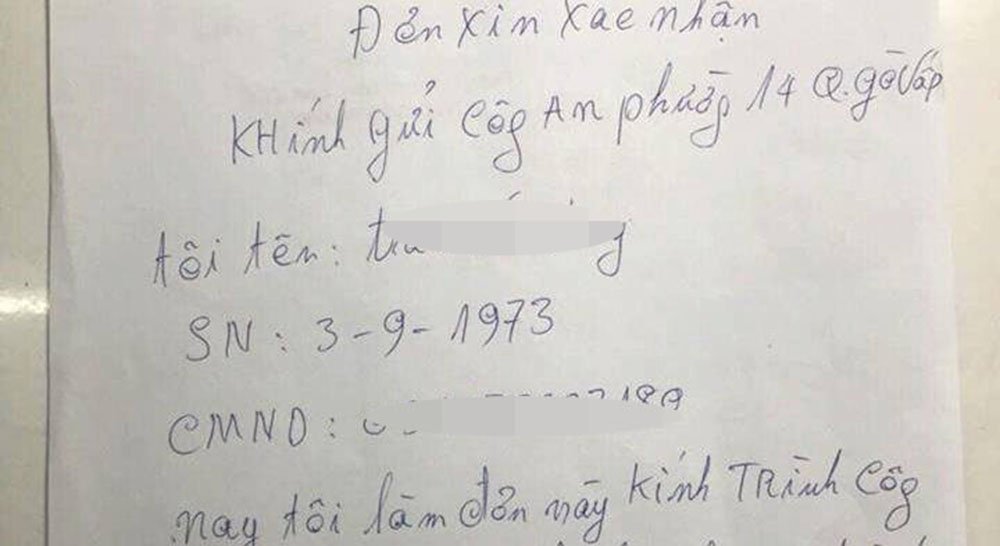 Đơn xin xác nhận
KHính gửi Côg An phường 14 Q. gò Vấp
tôi tên:
SN: 3-9-1973
CMND:
nay tôi làm đơn này Kính TRình Côg